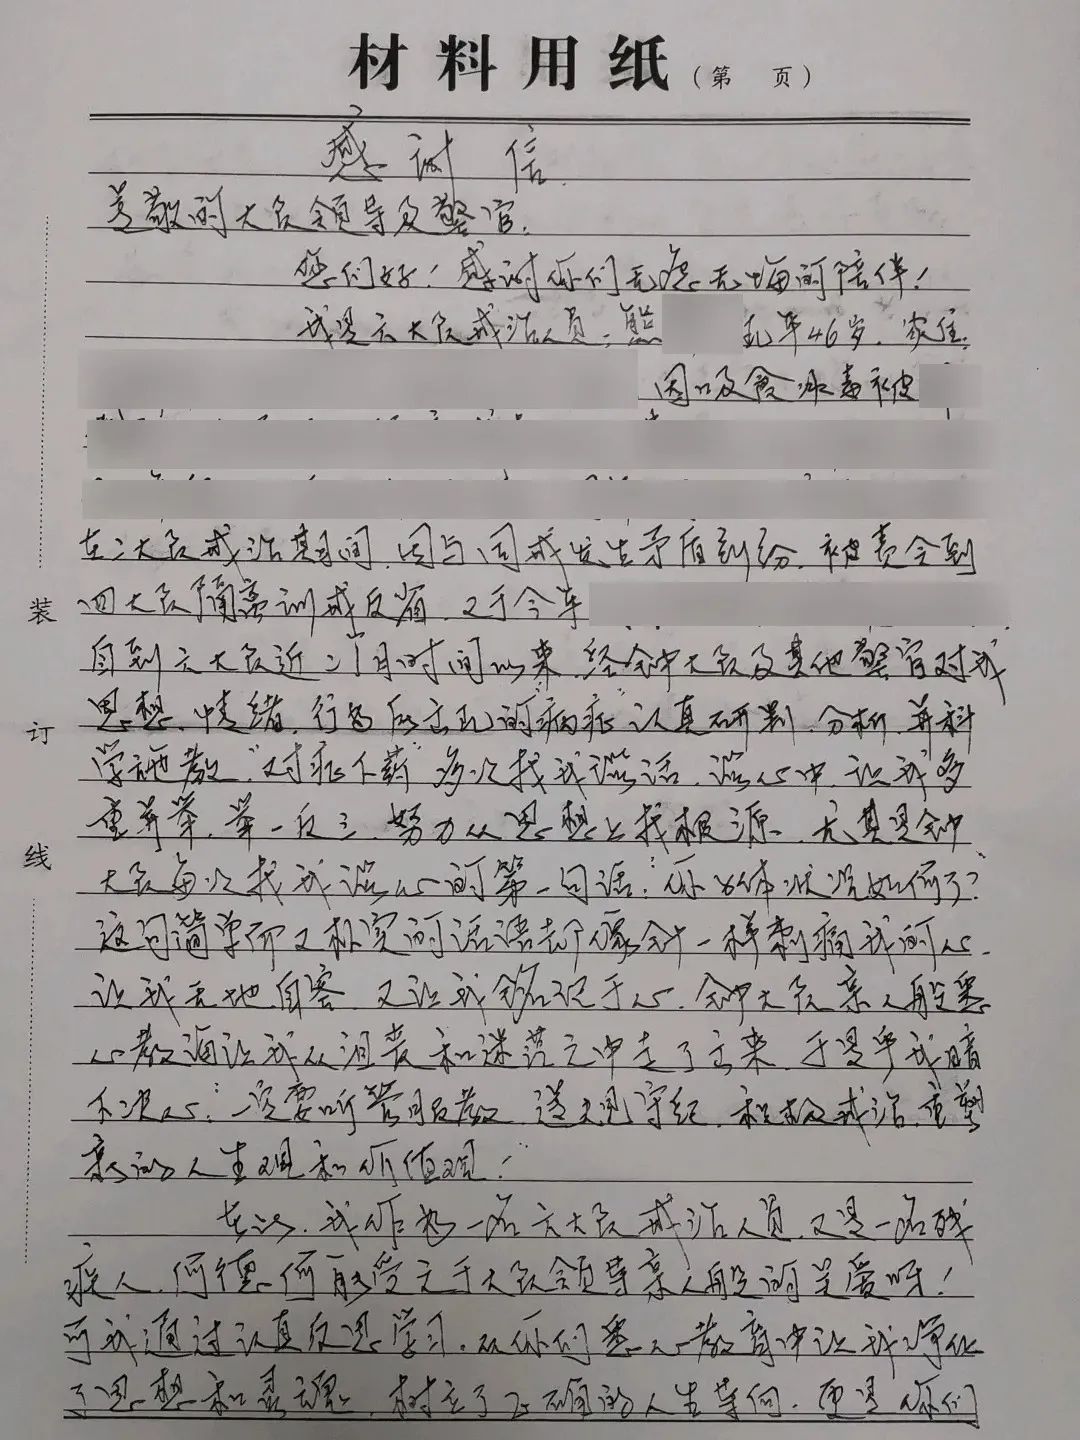 材料用纸(第 页)
感谢信
尊敬的大队领导及警官:
您们好!感谢你们无怨无悔的陪伴!
我是六大队戒治人员:熊 现年46岁,家住:
因吸食冰毒被
在二大队戒治其间,因与同戒发生矛盾纠纷,被责令到
四大队隔离训戒反省,又于今年
自到六大队近二个月时间以来,经钟大队及其他警官对我
思想、情绪、行为所出现的病症,认真研判、分析,并科
学施教“对症下药”多次找我谈话、谈心中,让我多
重并举,举一反三,努力从思想上找根源。尤其是钟
大队每次找我谈心的第一句话:“你身体状况如何了?”
这句简单而又朴实的话语却像针一样刺痛我的心,
让我无地自容,又让我铭记于心,钟大队亲人般悉
心教诲让我从沮丧和迷茫之中走了出来,于是乎我暗
下决心:“一定要听管服教、遵规守纪、积极戒治,重塑
新的人生观和价值观!”
在此,我作为一名六大队戒治人员,又是一名残
疾人,何德何能受之于大队领导亲人般的关爱呀!
可我通过认真反思学习,从你们悉心教育中让我净化
了思想和灵魂,树立了正确的人生等向,更是你们
装
订
线